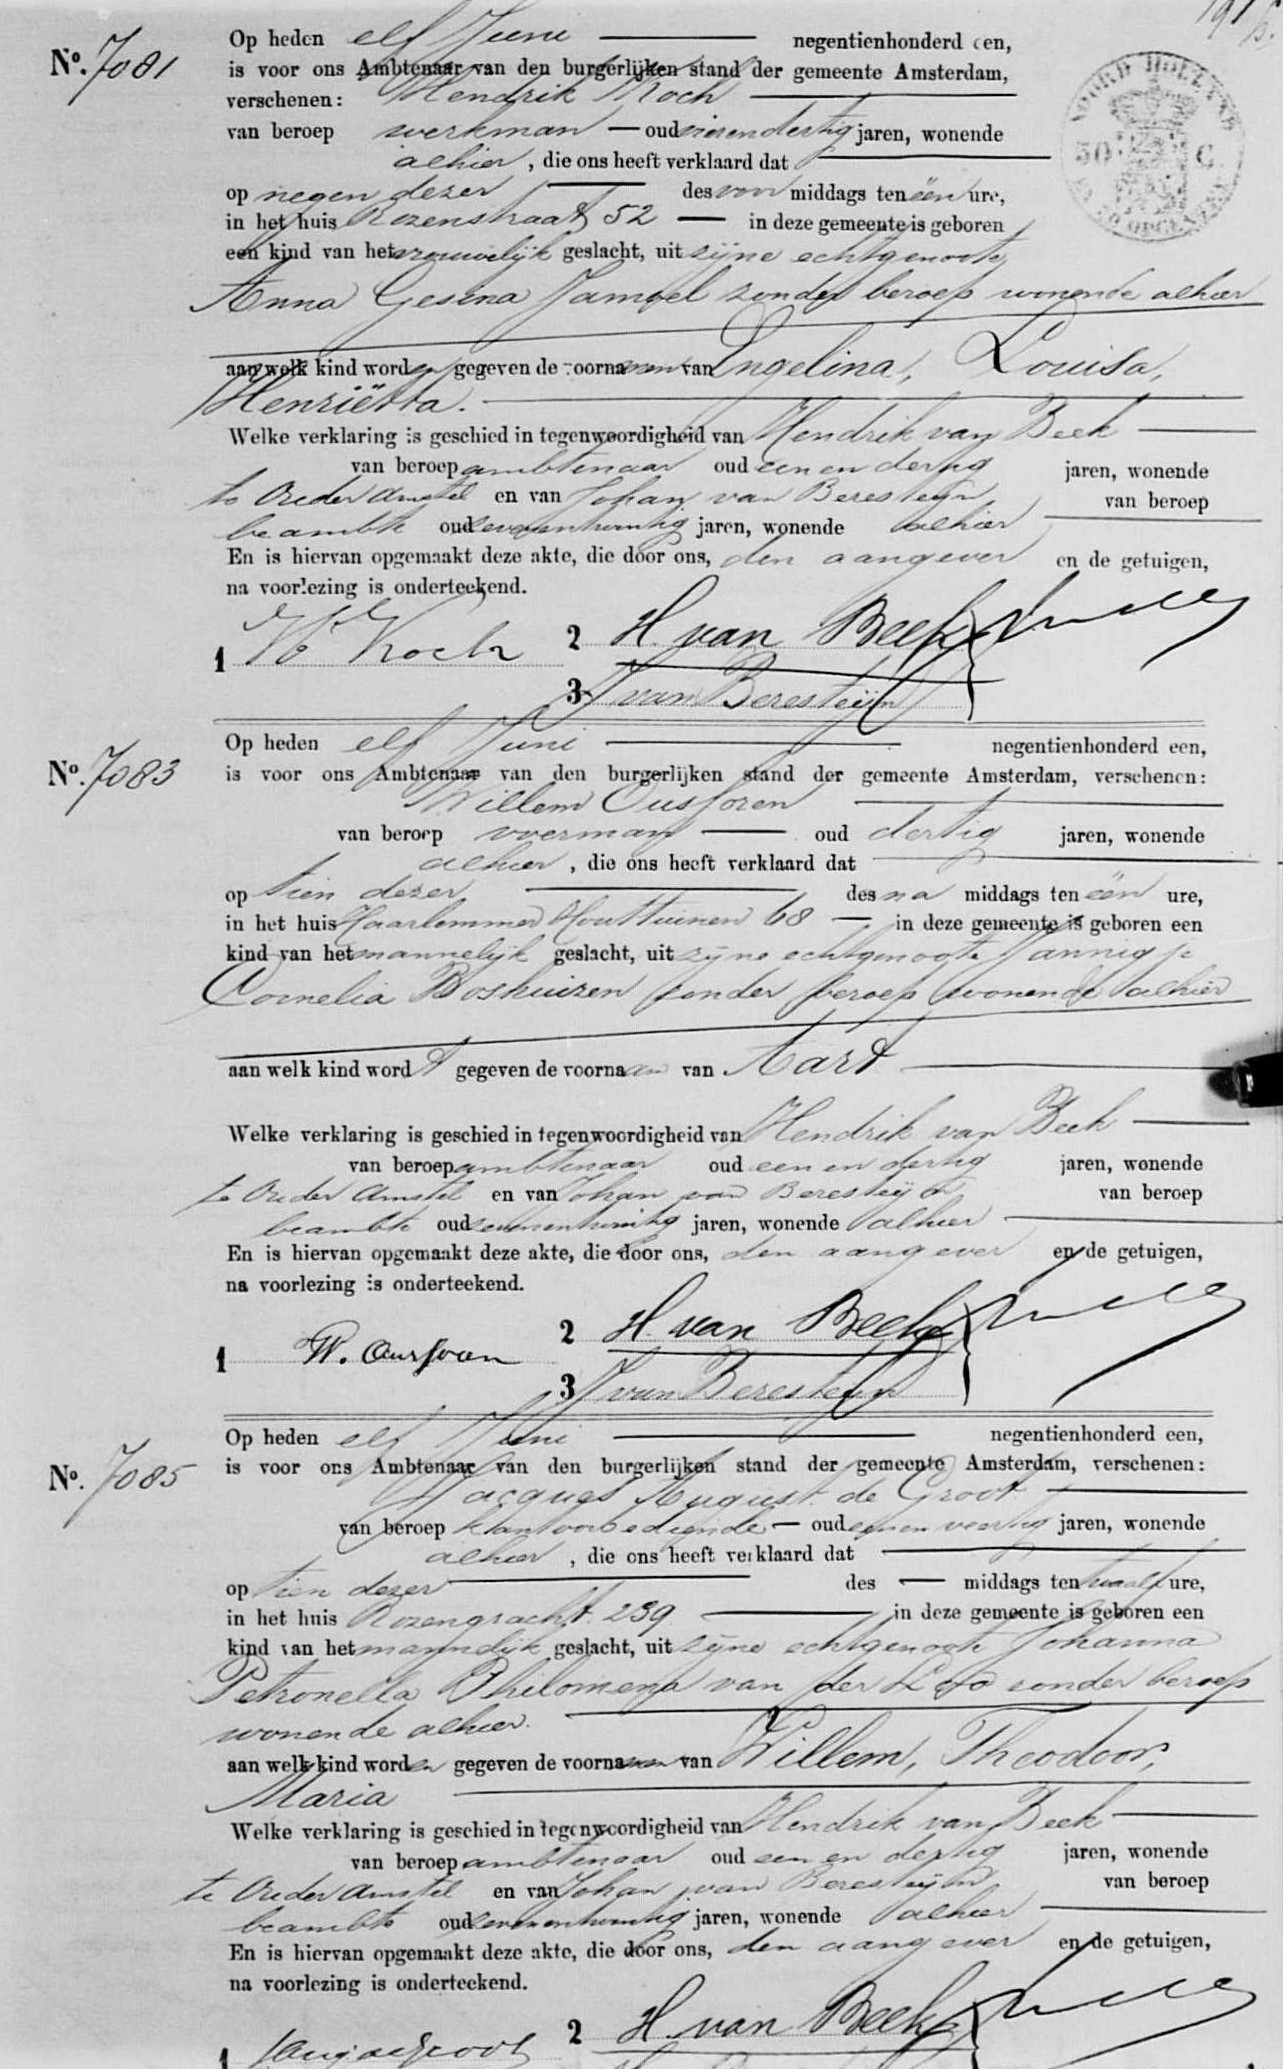 No. 7081
Op heden elf Juni negentienhonderd een,
is voor ons Ambtenaar van den burgerlijken stand der gemeente Amsterdam,
verschenen: Hendrik Koch
van beroep werkman oud vierendertig jaren, wonende
alhier, die ons heeft verklaard dat
op negen dezer des voor middags ten één ure,
in het huis Rozenstraat 52 in deze gemeente is geboren
een kind van het vrouwelijk geslacht, uit zijne echtgenoote
Anna Gesina zonder beroep wonende alhier
aan welk kind worden gegeven de voornamen van Engelina, Louisa,
Henriëtta.
Welke verklaring is geschied in tegenwoordigheid van Hendrik van Beek
van beroep ambtenaar oud een en dertig jaren, wonende
te Ouder Amstel en van Johan van Beresteijn, van beroep
beambte oud zevenentwintig jaren, wonende alhier
En is hiervan opgemaakt deze akte, die door ons, den aangever en de getuigen,
na voorlezing is onderteekend.
1 H Koch 2 H. van Beek
3 J van Beresteijn
Op heden elf Juni negentienhonderd een,
No. 7083
is voor ons Ambtenaar van den burgerlijken stand der gemeente Amsterdam, verschenen:
Willem Ousjoren
van beroep voerman oud dertig jaren, wonende
alhier, die ons heeft verklaard dat
op tien dezer des na middags ten één ure,
in het huis Haarlemmer Houttuinen 68 in deze gemeente is geboren een
kind van het mannelijk geslacht, uit zijne echtgenoote Jannigje
Cornelia Boshuizen zonder beroep wonende alhier
aan welk kind wordt gegeven de voornaam van Aart
Welke verklaring is geschied in tegenwoordigheid van Hendrik van Beek
van beroep ambtenaar oud een en dertig jaren, wonende
te Ouder Amstel en van Johan van Beresteijn van beroep
beambte oud zevenentwintig jaren, wonende alhier
En is hiervan opgemaakt deze akte, die door ons, den aangever en de getuigen,
na voorlezing is onderteekend.
1 W. Oursoren 2 H. van Beek
3 J van Beresteijn
Op heden elf Juni negentienhonderd een,
No. 7085
is voor ons Ambtenaar van den burgerlijken stand der gemeente Amsterdam, verschenen:
Jacques August de Groot
van beroep kantoorbediende oud een en veertig jaren, wonende
alhier, die ons heeft verklaard dat
op tien dezer des middags ten twaalf ure,
in het huis Rozengracht 239 in deze gemeente is geboren een
kind van het mannelijk geslacht, uit zijne echtgenoote Johanna
Petronella Philomena van der zonder beroep
wonende alhier.
aan welk kind worden gegeven de voornamen van Willem, Theodoor,
Maria
Welke verklaring is geschied in tegenwoordigheid van Hendrik van Beek
van beroep ambtenaar oud een en dertig jaren, wonende
te Ouder Amstel en van Johan van Beresteijn van beroep
beambte oud zevenentwintig jaren, wonende alhier
En is hiervan opgemaakt deze akte, die door ons, den aangever en de getuigen,
na voorlezing is onderteekend.
2 H. van Beek
1